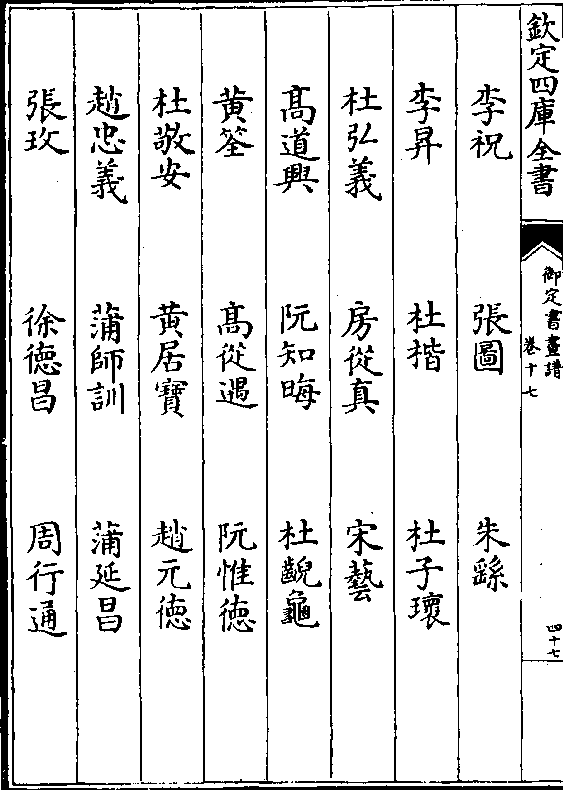 欽定四庫全書
御定書畫譜
卷十七
四十七
李祝 張圖 朱繇
李昇 杜揩 杜子瓌
杜弘義 房從真 宋藝
高道興 阮知晦 杜齯龜
黄筌 高從遇 阮惟德
杜敬安 黄居寶 趙元德
趙忠義 蒲師訓 蒲延昌
張玫 徐德昌 周行通